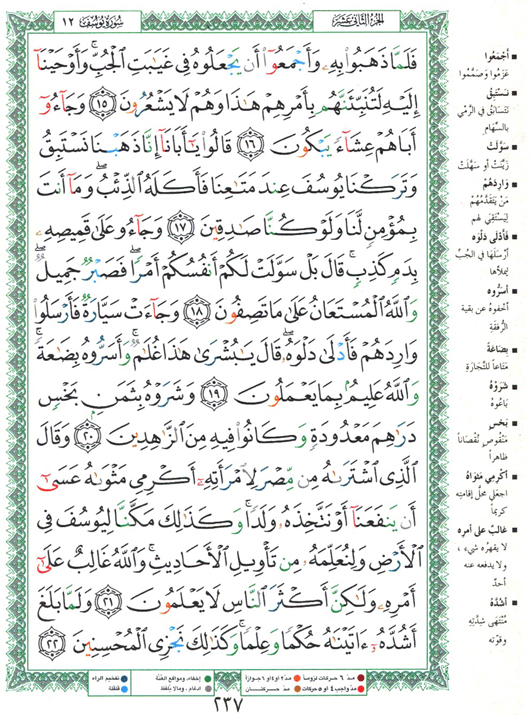 سُورَةُ يُوسُفَ ١٢
الجُزءُ الثَّانِي عَشَر
فَلَمَّا ذَهَبُوا۟ بِهِۦ وَأَجْمَعُوٓا۟ أَن يَجْعَلُوهُ فِى غَيَٰبَتِ ٱلْجُبِّ ۚ وَأَوْحَيْنَآ
إِلَيْهِ لَتُنَبِّئَنَّهُم بِأَمْرِهِمْ هَٰذَا وَهُمْ لَا يَشْعُرُونَ ١٥ وَجَآءُوٓ
أَبَاهُمْ عِشَآءً يَبْكُونَ ١٦ قَالُوا۟ يَٰٓأَبَانَآ إِنَّا ذَهَبْنَا نَسْتَبِقُ
وَتَرَكْنَا يُوسُفَ عِندَ مَتَٰعِنَا فَأَكَلَهُ ٱلذِّئْبُ ۖ وَمَآ أَنتَ
بِمُؤْمِنٍ لَّنَا وَلَوْ كُنَّا صَٰدِقِينَ ١٧ وَجَآءُو عَلَىٰ قَمِيصِهِۦ
بِدَمٍ كَذِبٍ ۚ قَالَ بَلْ سَوَّلَتْ لَكُمْ أَنفُسُكُمْ أَمْرًا ۖ فَصَبْرٌ جَمِيلٌ ۖ
وَٱللَّهُ ٱلْمُسْتَعَانُ عَلَىٰ مَا تَصِفُونَ ١٨ وَجَآءَتْ سَيَّارَةٌ فَأَرْسَلُوا۟
وَارِدَهُمْ فَأَدْلَىٰ دَلْوَهُۥ ۖ قَالَ يَٰبُشْرَىٰ هَٰذَا غُلَٰمٌ ۚ وَأَسَرُّوهُ بِضَٰعَةً ۚ
وَٱللَّهُ عَلِيمٌۢ بِمَا يَعْمَلُونَ ١٩ وَشَرَوْهُ بِثَمَنٍۭ بَخْسٍ
دَرَٰهِمَ مَعْدُودَةٍ وَكَانُوا۟ فِيهِ مِنَ ٱلزَّٰهِدِينَ ٢٠ وَقَالَ
ٱلَّذِى ٱشْتَرَىٰهُ مِن مِّصْرَ لِٱمْرَأَتِهِۦٓ أَكْرِمِى مَثْوَىٰهُ عَسَىٰٓ
أَن يَنفَعَنَآ أَوْ نَتَّخِذَهُۥ وَلَدًا ۚ وَكَذَٰلِكَ مَكَّنَّا لِيُوسُفَ فِى
ٱلْأَرْضِ وَلِنُعَلِّمَهُۥ مِن تَأْوِيلِ ٱلْأَحَادِيثِ ۚ وَٱللَّهُ غَالِبٌ عَلَىٰٓ
أَمْرِهِۦ وَلَٰكِنَّ أَكْثَرَ ٱلنَّاسِ لَا يَعْلَمُونَ ٢١ وَلَمَّا بَلَغَ
أَشُدَّهُۥٓ ءَاتَيْنَٰهُ حُكْمًا وَعِلْمًا ۚ وَكَذَٰلِكَ نَجْزِى ٱلْمُحْسِنِينَ ٢٢
أَجْمَعُوا
عَزَمُوا وَصَمَّمُوا
نَسْتَبِقُ
نَتَسَابَقُ فِي الرَّمْيِ
بِالسِّهَامِ
سَوَّلَتْ
زَيَّنَتْ أو سَهَّلَتْ
وَارِدَهُمْ
مَنْ يَتَقَدَّمُهُمْ
لِيَسْتَقِيَ لهم
فَأَدْلَى دَلْوَه
أَرْسَلَهَا فِي الجُبِّ
لِيَمْلأَهَا
أَسَرُّوه
أخفوهُ عن بقية
الرُّفقة
بِضَاعَةً
مَتَاعاً للتِّجَارَةِ
شَرَوْهُ
بَاعُوهُ
بَخْسٍ
مَنْقُوصٍ نُقْصَاناً
ظاهراً
أَكْرِمِي مَثْوَاهُ
اجعَلي محلَّ إقامتِه
كَريماً
غَالبٌ على أمرِه
لا يقهرُه شيء ،
ولا يدفعه عنه
أحدٌ
أَشُدَّهُ
مُنْتَهَى شِدَّتِهِ
وقوّته
مدّ ٦ حركات لزوماً
مدّ ٢ أو ٤ أو ٦ جوازاً
إخفاء، ومواقع الغُنَّة
تفخيم الراء
مدّ واجب ٤ أو ٥ حركات
مدّ حركتان
ادغام ، ومالا يلفظ
قلقلة
٢٣٧